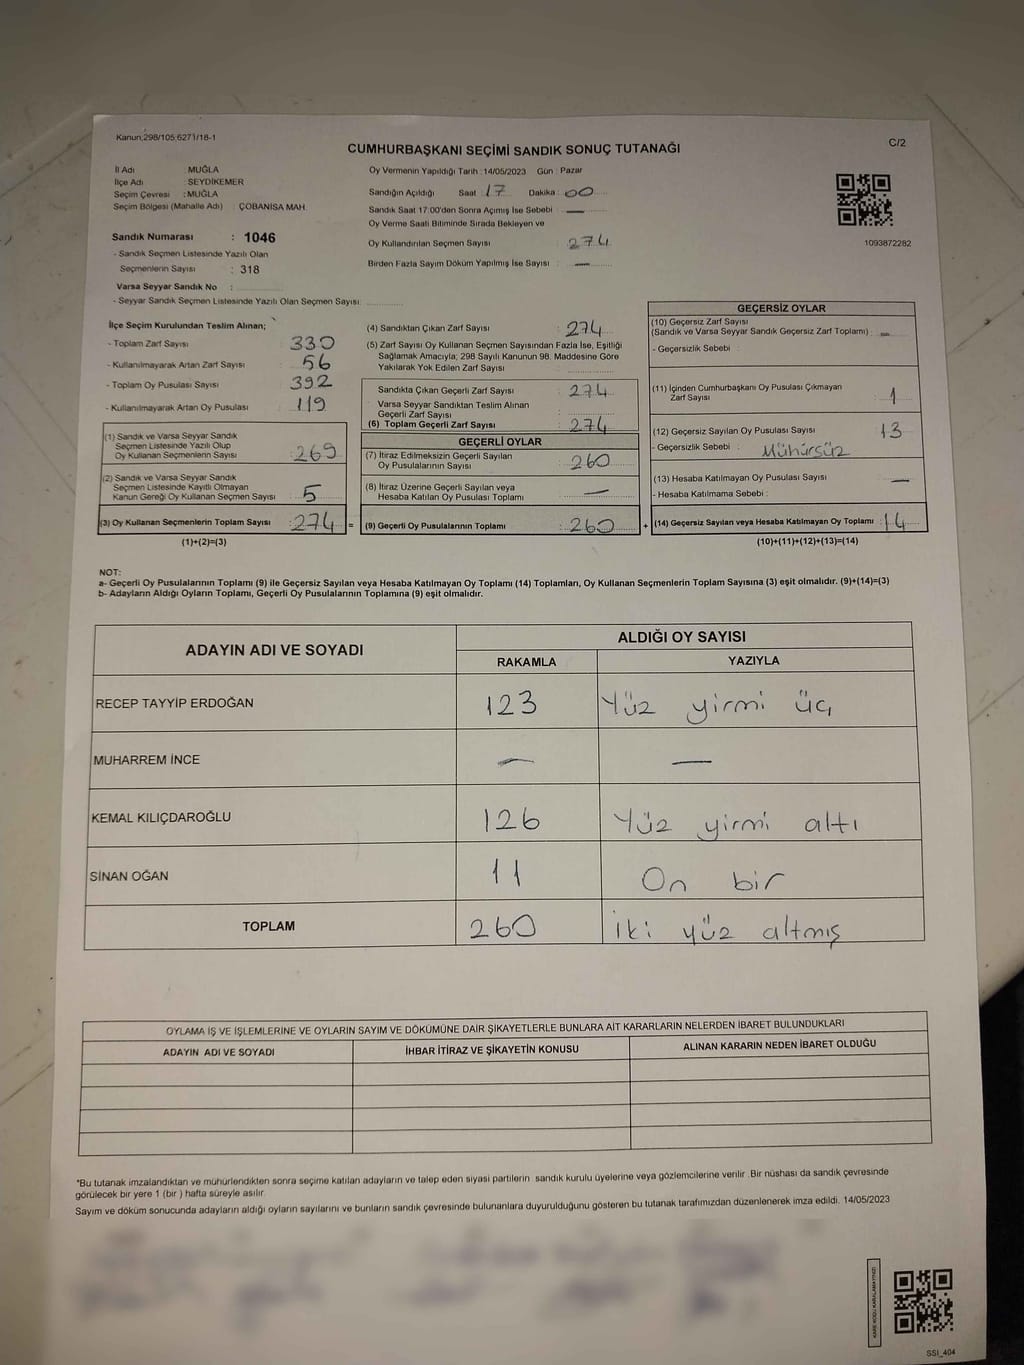 Kanun:298/105,6271/18-1
CUMHURBAŞKANI SEÇİMİ SANDIK SONUÇ TUTANAĞI
C/2
İl Adı : MUĞLA
İlçe Adı : SEYDİKEMER
Seçim Çevresi : MUĞLA
Seçim Bölgesi (Mahalle Adı) : ÇOBANİSA MAH.
Sandık Numarası : 1046
- Sandık Seçmen Listesinde Yazılı Olan
Seçmenlerin Sayısı : 318
Varsa Seyyar Sandık No :
- Seyyar Sandık Seçmen Listesinde Yazılı Olan Seçmen Sayısı:
Oy Vermenin Yapıldığı Tarih : 14/05/2023 Gün : Pazar
Sandığın Açıldığı Saat : 17 Dakika : 00
Sandık Saat 17:00'den Sonra Açılmış İse Sebebi : —
Oy Verme Saati Bitiminde Sırada Bekleyen ve
Oy Kullandırılan Seçmen Sayısı : 274
Birden Fazla Sayım Döküm Yapılmış İse Sayısı : —
1093872282
İlçe Seçim Kurulundan Teslim Alınan;
- Toplam Zarf Sayısı : 330
- Kullanılmayarak Artan Zarf Sayısı : 56
- Toplam Oy Pusulası Sayısı : 392
- Kullanılmayarak Artan Oy Pusulası : 119
(1) Sandık ve Varsa Seyyar Sandık
Seçmen Listesinde Yazılı Olup
Oy Kullanan Seçmenlerin Sayısı : 269
(2) Sandık ve Varsa Seyyar Sandık
Seçmen Listesinde Kayıtlı Olmayan
Kanun Gereği Oy Kullanan Seçmen Sayısı : 5
(3) Oy Kullanan Seçmenlerin Toplam Sayısı : 274 =
(1)+(2)=(3)
(4) Sandıktan Çıkan Zarf Sayısı : 274
(5) Zarf Sayısı Oy Kullanan Seçmen Sayısından Fazla İse, Eşitliği
Sağlamak Amacıyla; 298 Sayılı Kanunun 98. Maddesine Göre
Yakılarak Yok Edilen Zarf Sayısı :
Sandıkta Çıkan Geçerli Zarf Sayısı : 274
Varsa Seyyar Sandıktan Teslim Alınan
Geçerli Zarf Sayısı :
(6) Toplam Geçerli Zarf Sayısı : 274
GEÇERLİ OYLAR
(7) İtiraz Edilmeksizin Geçerli Sayılan
Oy Pusulalarının Sayısı : 260
(8) İtiraz Üzerine Geçerli Sayılan veya
Hesaba Katılan Oy Pusulası Toplamı : —
(9) Geçerli Oy Pusulalarının Toplamı : 260 +
GEÇERSİZ OYLAR
(10) Geçersiz Zarf Sayısı
(Sandık ve Varsa Seyyar Sandık Geçersiz Zarf Toplamı) : —
- Geçersizlik Sebebi :
(11) İçinden Cumhurbaşkanı Oy Pusulası Çıkmayan
Zarf Sayısı : 1
(12) Geçersiz Sayılan Oy Pusulası Sayısı : 13
- Geçersizlik Sebebi : Mühürsüz
(13) Hesaba Katılmayan Oy Pusulası Sayısı : —
- Hesaba Katılmama Sebebi :
(14) Geçersiz Sayılan veya Hesaba Katılmayan Oy Toplamı : 14
(10)+(11)+(12)+(13)=(14)
NOT:
a- Geçerli Oy Pusulalarının Toplamı (9) ile Geçersiz Sayılan veya Hesaba Katılmayan Oy Toplamı (14) Toplamları, Oy Kullanan Seçmenlerin Toplam Sayısına (3) eşit olmalıdır. (9)+(14)=(3)
b- Adayların Aldığı Oyların Toplamı, Geçerli Oy Pusulalarının Toplamına (9) eşit olmalıdır.
ADAYIN ADI VE SOYADI
ALDIĞI OY SAYISI
RAKAMLA YAZIYLA
RECEP TAYYİP ERDOĞAN 123 Yüz yirmi üç
MUHARREM İNCE — —
KEMAL KILIÇDAROĞLU 126 Yüz yirmi altı
SİNAN OĞAN 11 On bir
TOPLAM 260 iki yüz altmış
OYLAMA İŞ VE İŞLEMLERİNE VE OYLARIN SAYIM VE DÖKÜMÜNE DAİR ŞİKAYETLERLE BUNLARA AİT KARARLARIN NELERDEN İBARET BULUNDUKLARI
ADAYIN ADI VE SOYADI İHBAR İTİRAZ VE ŞİKAYETİN KONUSU ALINAN KARARIN NEDEN İBARET OLDUĞU
*Bu tutanak imzalandıktan ve mühürlendikten sonra seçime katılan adayların ve talep eden siyasi partilerin sandık kurulu üyelerine veya gözlemcilerine verilir. Bir nüshası da sandık çevresinde
görülecek bir yere 1 (bir ) hafta süreyle asılır.
Sayım ve döküm sonucunda adayların aldığı oyların sayılarını ve bunların sandık çevresinde bulunanlara duyurulduğunu gösteren bu tutanak tarafımızdan düzenlenerek imza edildi. 14/05/2023
KARE KODU KARALAMAYINIZ!
SSI_404